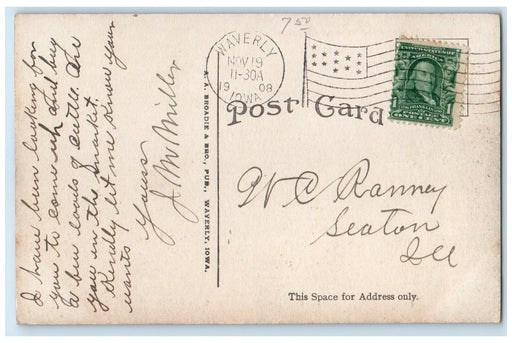 7 50
WAVERLY
NOV 19
11-30A
1908
IOWA
UNITED STATES OF AMERICA
FRANKLIN
ONE CENT
Post Card
W C Ranney
Seaton
Ill
This Space for Address only.
A. A. BROADIE & BRO., PUB., WAVERLY, IOWA.
I have been looking for
you to come up and buy
a few loads of cattle. Are
you in the market.
Kindly let me know your
wants
Yours
J. W. Miller